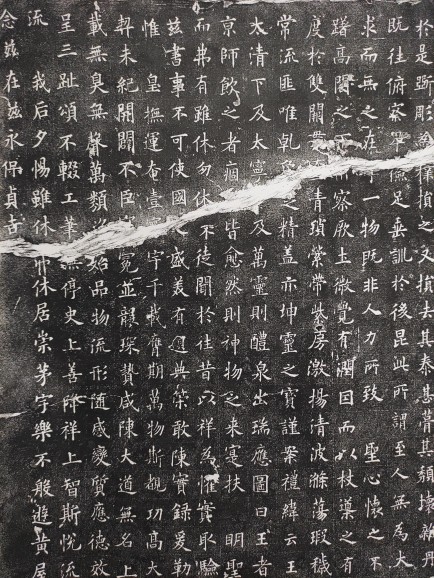 於是斲彫為樸損之又損去其泰甚葺其頹壞雜丹
既往俯察卑儉足垂訓於後昆此所謂至人無為大
求而無之在乎一物既非人力所致聖心懷之不
躇高閣之下俯察厥土微覺有潤因而以杖導之有
度於雙闕貫青瑣縈帶紫房激揚清波滌蕩瑕穢
常流匪唯乾象之精蓋亦坤靈之寶謹案禮緯云王
太清下及太寧中及萬靈則醴泉出瑞應圖曰王者
京師飲之者痼疾皆愈然則神物之來寔扶明聖
而弗有雖休勿休不徒聞於往昔以祥為懼實取驗
茲書事不可使國之盛美有遺典策敢陳實錄爰勒
惟皇撫運奄壹寰宇千載膺期萬物斯覩功高大
契未紀開闢不臣冠冕並襲琛贄咸陳大道無名上
載無臭無聲萬類資始品物流形隨感變質應德效
呈三趾頌不輟工筆無停史上善降祥上智斯悅流
流我后夕惕雖休弗休居崇茅宇樂不般遊黃屋
念茲在茲永保貞吉